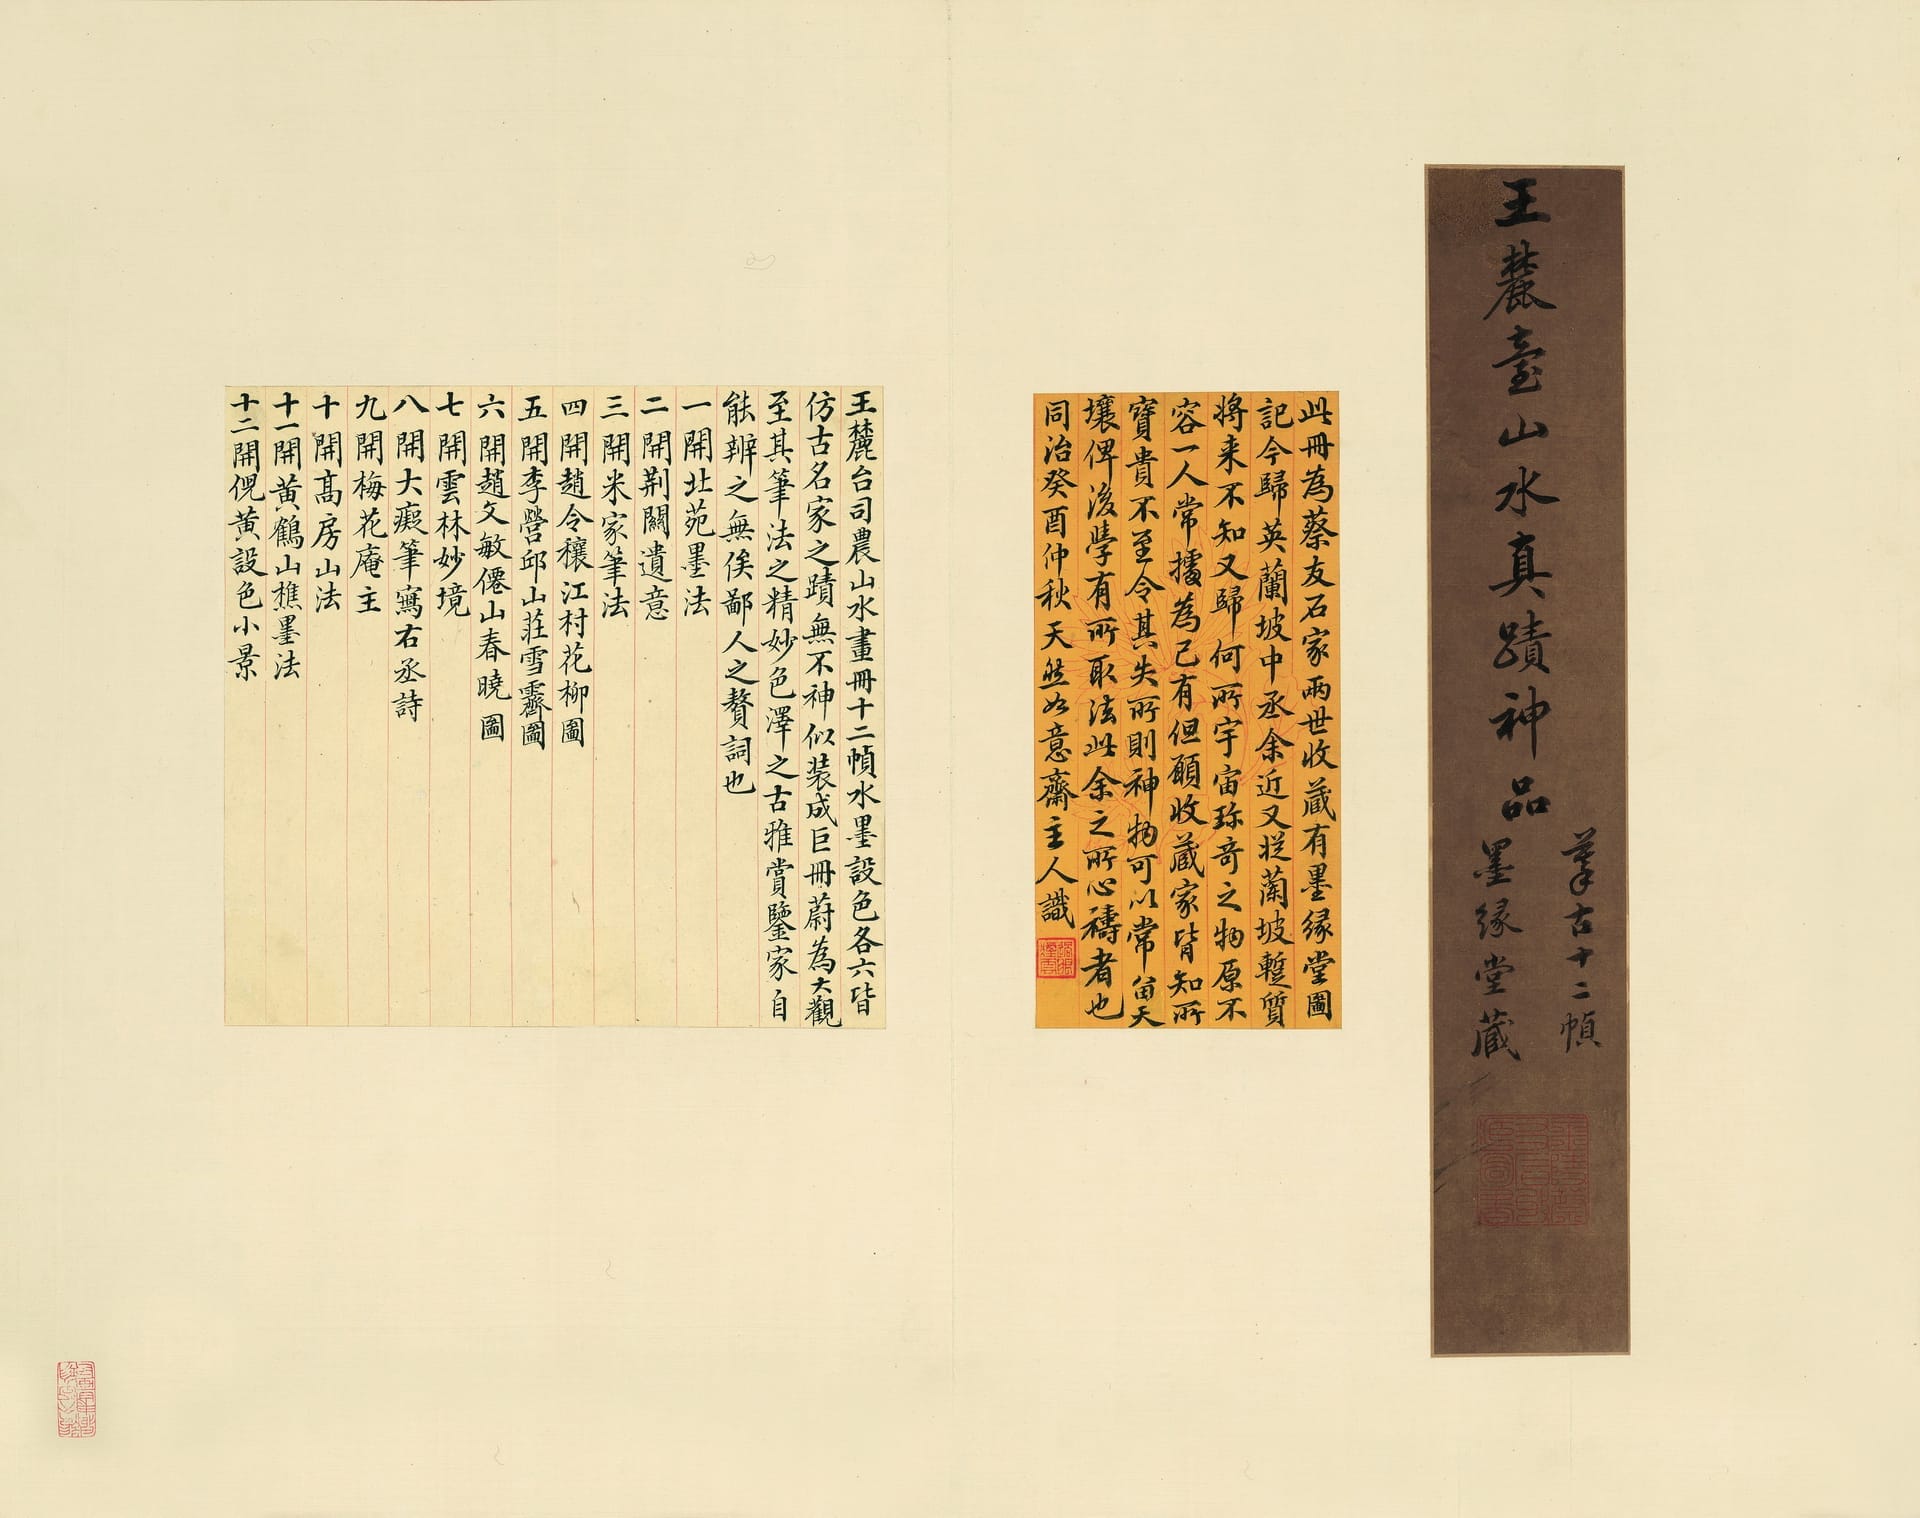 王麓臺山水真蹟神品
摹古十二幀
墨緣堂藏
此冊為蔡友石家兩世收藏有墨緣堂圖
記今歸英蘭坡中丞余近又從蘭坡蹔質
將来不知又歸何所宇宙珎奇之物原不
容一人常據為己有但願收藏家皆知所
寶貴不至令其失所則神物可以常留天
壤俾後學有所取法此余之所心禱者也
同治癸酉仲秋天然如意齋主人識
王麓台司農山水畫冊十二幀水墨設色各六皆
仿古名家之蹟無不神似裝成巨冊蔚為大觀
至其筆法之精妙色澤之古雅賞鑒家自
能辨之無俟鄙人之贅詞也
一開北苑墨法
二開荆關遺意
三開米家筆法
四開趙令穰江村花柳圖
五開李營邱山莊雪霽圖
六開趙文敏僊山春曉圖
七開雲林妙境
八開大癡筆寫右丞詩
九開梅花庵主
十開高房山法
十一開黄鶴山樵墨法
十二開倪黄設色小景